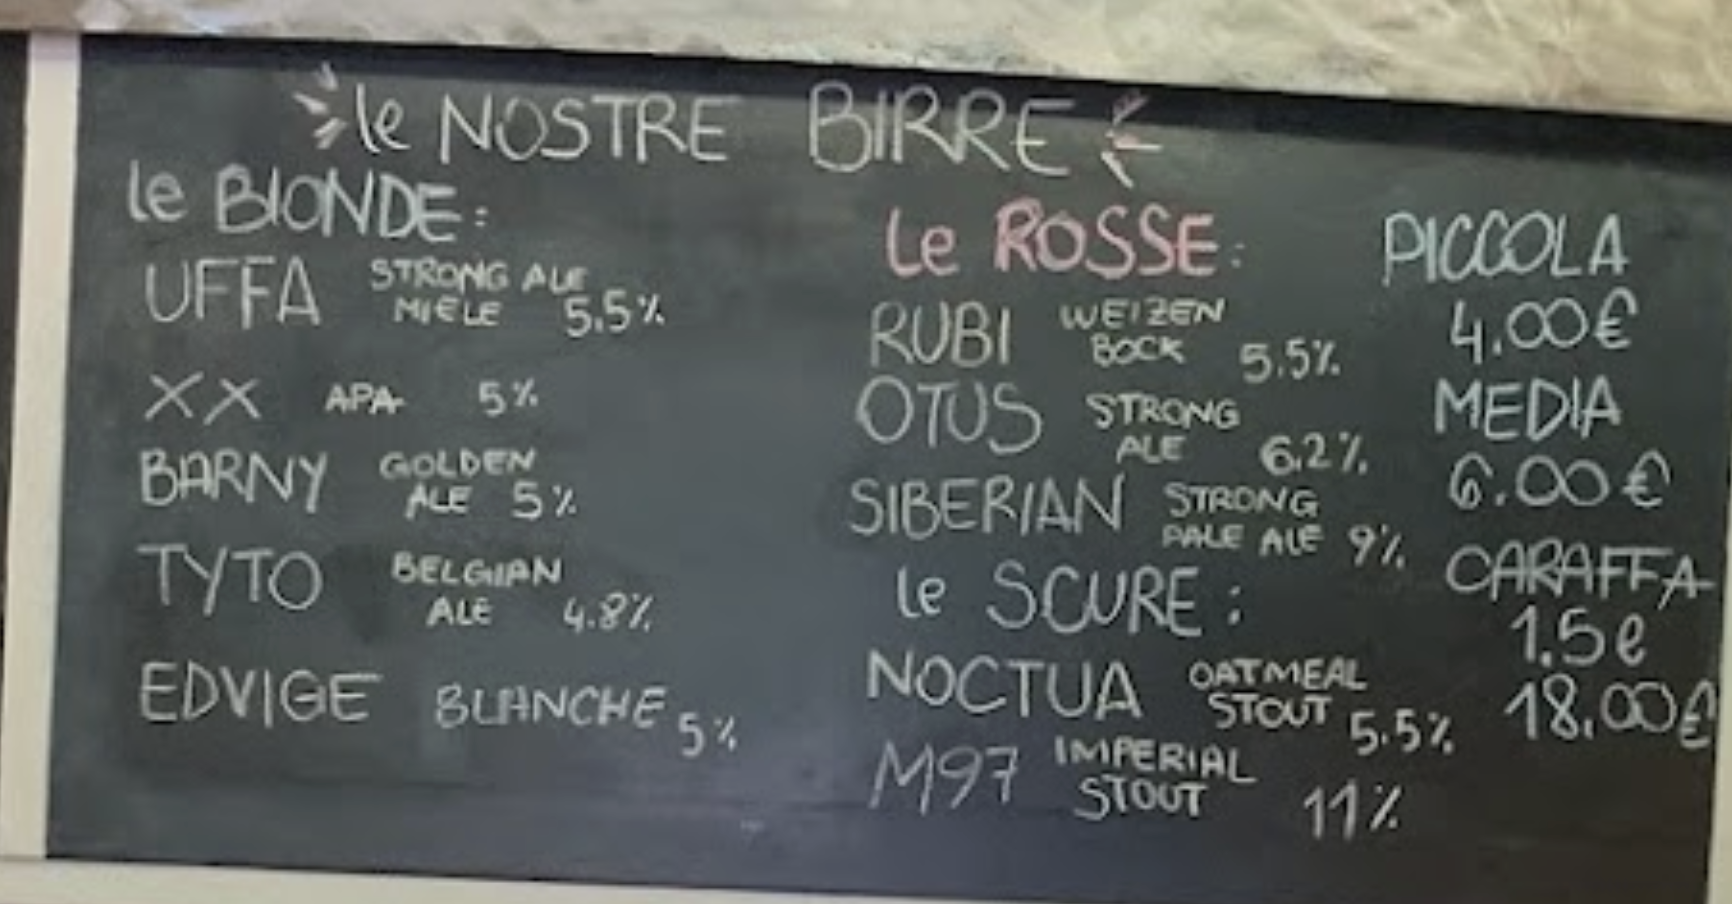 le NOSTRE BIRRE
le BIONDE:
UFFA STRONG ALE
MIELE 5.5%
XX APA 5%
BARNY GOLDEN
ALE 5%
TYTO BELGIAN
ALE 4.8%
EDVIGE BLANCHE 5%
le ROSSE:
RUBI WEIZEN
BOCK 5.5%
OTUS STRONG
ALE 6.2%
SIBERIAN STRONG
PALE ALE 9%
le SCURE:
NOCTUA OATMEAL
STOUT 5.5%
M97 IMPERIAL
STOUT 11%
PICCOLA
4.00€
MEDIA
6.00€
CARAFFA
1.5 l
18.00€